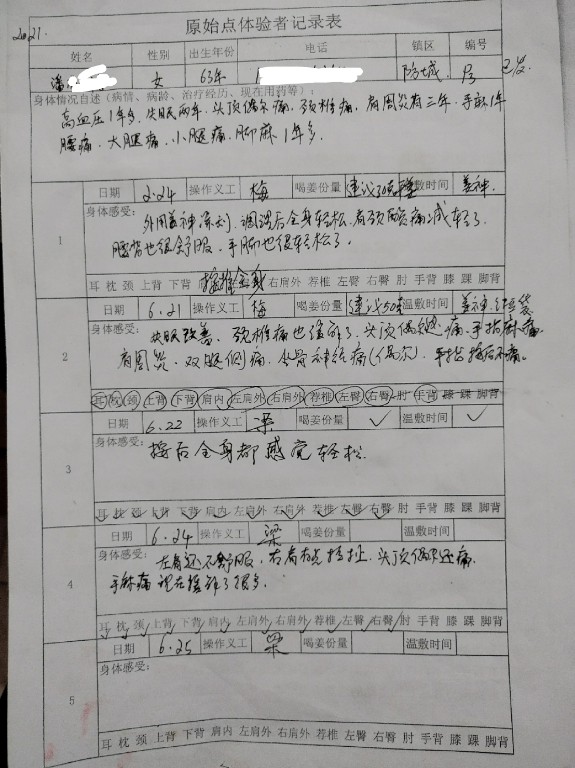 2021.
原始点体验者记录表
姓名 性别 出生年份 电话 镇区 编号
潘 女 63年 防城 已发
身体情况自述（病情、病龄、治疗经历、现在用药等）：
高血压1年多，失眠两年，头顶偶尔痛，颈椎痛，肩周炎有三年，手麻1年
腰痛，大腿痛，小腿痛，脚麻1年多.
日期 2.24 操作义工 梅 喝姜份量 建议 温敷时间 姜神.
1
身体感受：外用姜神 调理后全身轻松，肩颈酸痛减轻了.
腰背也很舒服，手脚也很轻松了.
按推全身
耳 枕 颈 上背 下背 右肩外 荐椎 左臀 右臀 肘 手背 膝 踝 脚背
日期 6.21 操作义工 梅 喝姜份量 建议50克 温敷时间 姜神.
2
身体感受：失眠改善，颈椎痛也缓解了，头顶偶 痛，手指麻痛
肩周炎，双腿 痛，坐骨神经痛(偶尔)，手指按后不痛。
耳 枕 颈 上背 下背 肩内 左肩外 右肩外 荐椎 左臀 右臀 肘 手背 膝 踝 脚背
日期 6.22 操作义工 梁 喝姜份量 ✓ 温敷时间 ✓
3
身体感受：按后全身都感觉轻松.
耳 枕 颈 上背 下背 肩内 左肩外 右肩外 荐椎 左臀 右臀 肘 手背 膝 踝 脚背
日期 6.24 操作义工 梁 喝姜份量 温敷时间
4
身体感受：左肩还不舒服，右肩有点 头顶偶尔还痛
手麻痛 现在缓解了很多.
耳 枕 颈 上背 下背 肩内 左肩外 右肩外 荐椎 左臀 右臀 肘 手背 膝 踝 脚背
日期 6.25 操作义工 梁 喝姜份量 温敷时间
5
身体感受：
耳 枕 颈 上背 下背 肩内 左肩外 右肩外 荐椎 左臀 右臀 肘 手背 膝 踝 脚背